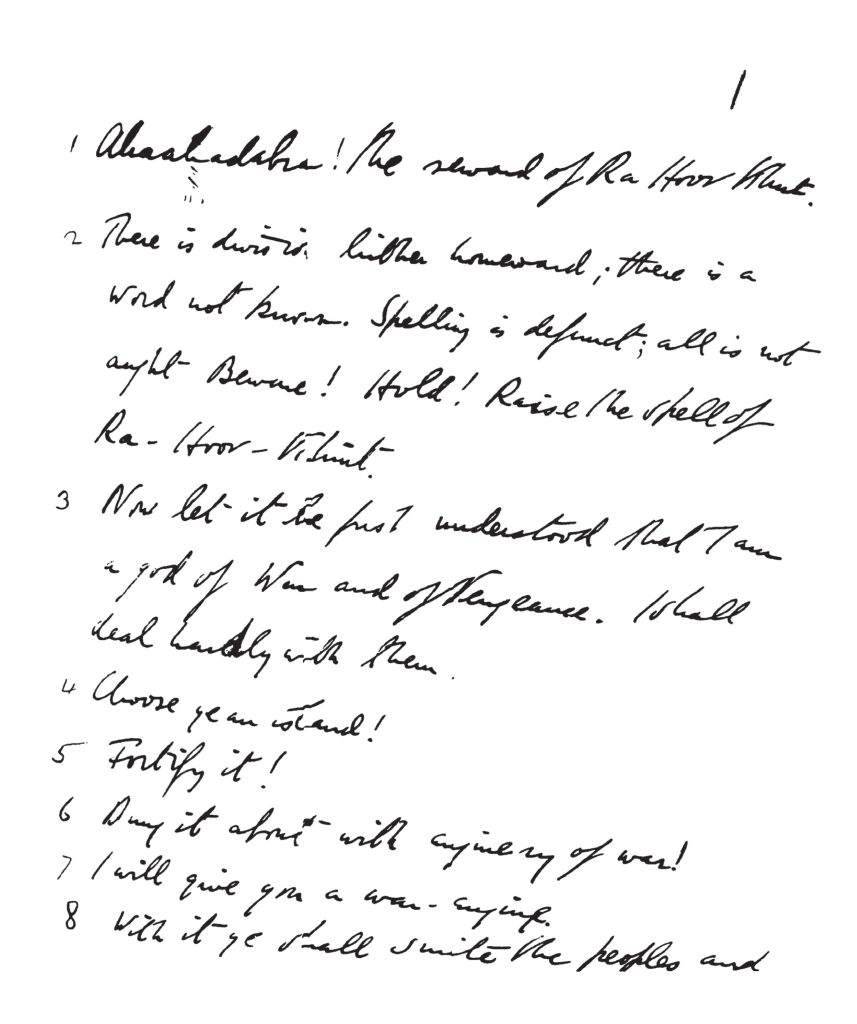 1
1 Abrahadabra! The reward of Ra Hoor Khut.
2 There is division hither homeward; there is a
word not known. Spelling is defunct; all is not
aught. Beware! Hold! Raise the spell of
Ra-Hoor-Khuit.
3 Now let it be first understood that I am
a god of War and of Vengeance. I shall
deal hardly with them.
4 Choose ye an island!
5 Fortify it!
6 Dung it about with enginery of war!
7 I will give you a war-engine.
8 With it ye shall smite the peoples and